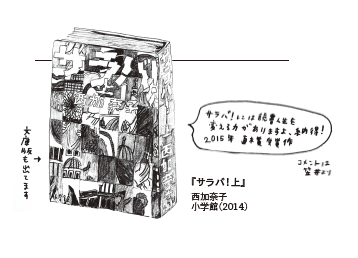 サラバ!には読書人生を
変える力がありますよ、素的得!
2015年 直木賞受賞作
コメントは
笠井より
文庫版も出てます
『サラバ!上』
西加奈子
小学館(2014)